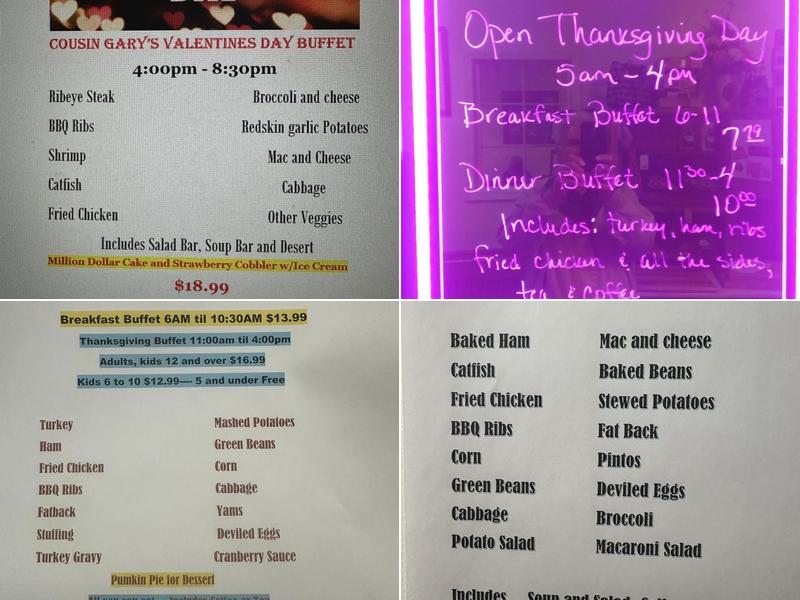 COUSIN GARY'S VALENTINES DAY BUFFET
4:00pm - 8:30pm
Ribeye Steak Broccoli and cheese
BBQ Ribs Redskin garlic Potatoes
Shrimp Mac and Cheese
Catfish Cabbage
Fried Chicken Other Veggies
Includes Salad Bar, Soup Bar and Desert
Million Dollar Cake and Strawberry Cobbler w/Ice Cream
$18.99
Open Thanksgiving Day
5am - 4pm
Breakfast Buffet 6-11
7.79
Dinner Buffet 11:30-4
10.00
Includes: turkey, ham, ribs
fried chicken & all the sides,
tea & coffee
Breakfast Buffet 6AM til 10:30AM $13.99
Thanksgiving Buffet 11:00am til 4:00pm
Adults, kids 12 and over $16.99
Kids 6 to 10 $12.99---- 5 and under Free
Turkey Mashed Potatoes
Ham Green Beans
Fried Chicken Corn
BBQ Ribs Cabbage
Fatback Yams
Stuffing Deviled Eggs
Turkey Gravy Cranberry Sauce
Pumkin Pie for Dessert
Baked Ham Mac and cheese
Catfish Baked Beans
Fried Chicken Stewed Potatoes
BBQ Ribs Fat Back
Corn Pintos
Green Beans Deviled Eggs
Cabbage Broccoli
Potato Salad Macaroni Salad
Includes Soup and Salad